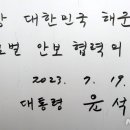 강 대한민국 해군
로벌 안보 협력의
2023. 7. 19.
대통령 윤석